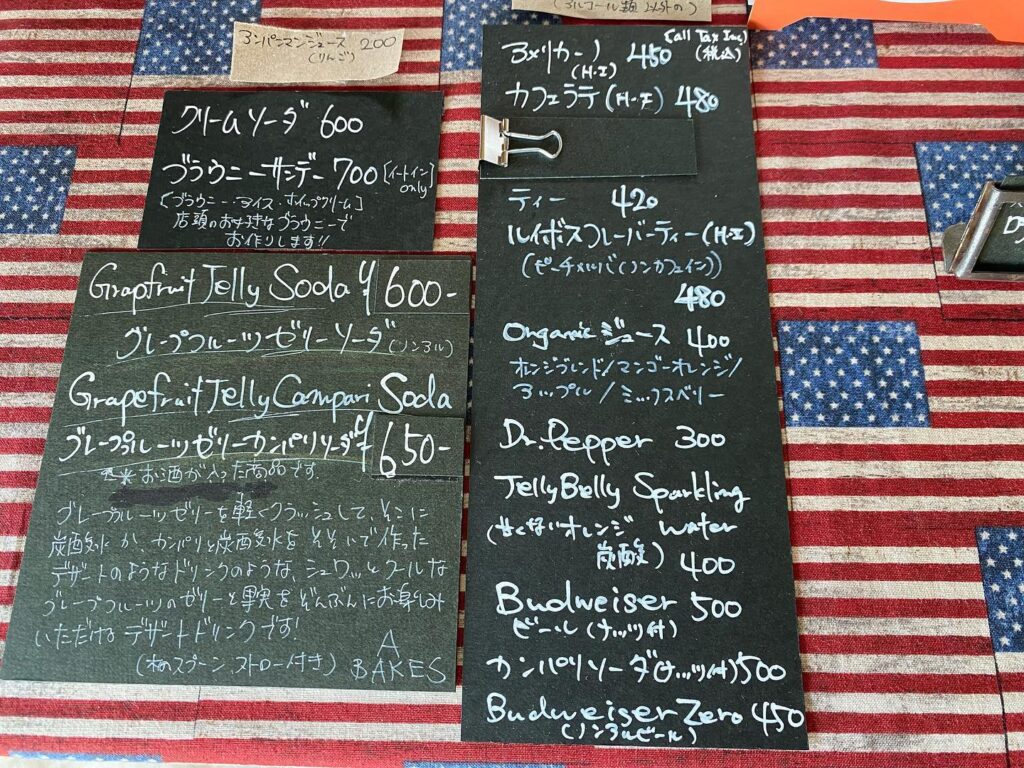 (アルコール類以外の)
アンパンマンジュース 200
(りんご)
クリームソーダ 600
ブラウニーサンデー 700 [イートイン only]
[ブラウニー・アイス・ホイップクリーム]
店頭のお好きなブラウニーで
お作りします!!
Grapfruit Jelly Soda ¥600-
グレープフルーツゼリーソーダ (ノンアル)
Grapefruit Jelly Campari Soda
グレープフルーツゼリーカンパリソーダ ¥650-
※お酒が入った商品です。
グレープフルーツゼリーを軽くクラッシュして、そこに
炭酸水か、カンパリと炭酸水をそそいで作った
デザートのようなドリンクのような、シュワッとクールな
グレープフルーツのゼリーと果実をぞんぶんにお楽しみ
いただけるデザートドリンクです!
(木のスプーン ストロー付き)
A
BAKES
(all Tax Inc)
アメリカーノ 450 (税込)
(H・I)
カフェラテ (H・I) 480
ティー 420
ルイボスフレーバーティー (H・I)
(ピーチメルバ (ノンカフェイン))
480
Organic ジュース 400
オレンジブレンド/マンゴーオレンジ/
アップル/ミックスベリー
Dr.Pepper 300
JellyBelly Sparkling
(甘くないオレンジ water
炭酸) 400
Budweiser 500
ビール (ナッツ付)
カンパリソーダ (ナッツ付) 500
Budweiser Zero 450
(ノンアルビール)